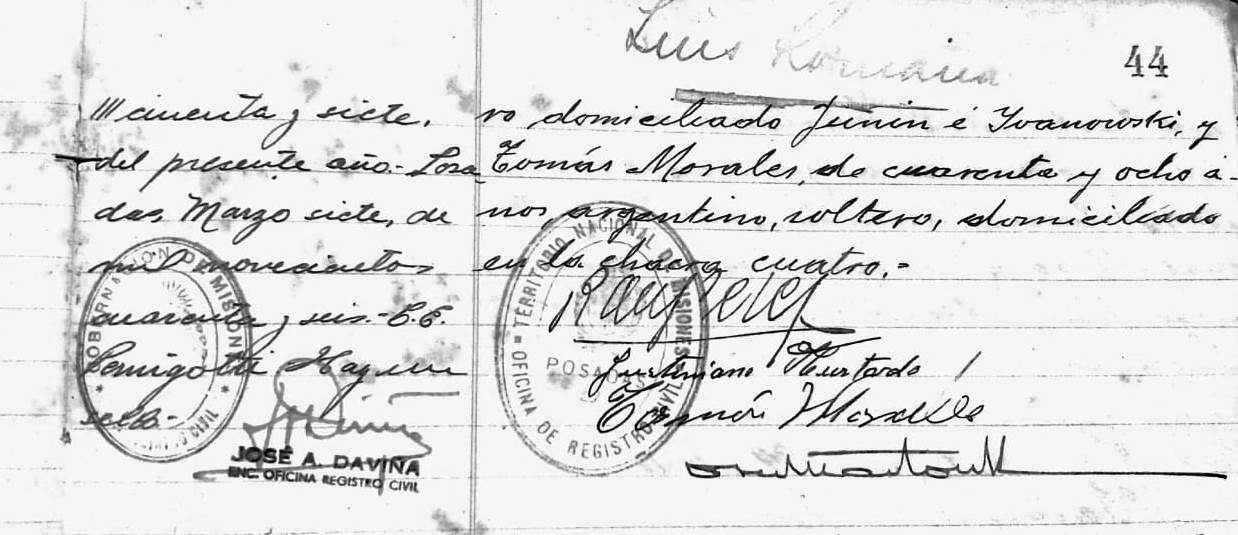 Luis Romana
44
cincuenta y siete,
del presente año.- Posa
das, Marzo siete, de
mil novecientos
cuarenta y seis.- C. E.
Hay un
sello.-
JOSÉ A. DAVIÑA
ENC. OFICINA REGISTRO CIVIL
GOBERNACION DE MISIONES
REGISTRO CIVIL
ro, domiciliado Junin é Yvanowski, y
Tomás Morales, de cuarenta y ocho a-
nos, argentino, soltero, domiciliado
en la chacra cuatro.-
Justiniano Hurtado
Tomás Morales
TERRITORIO NACIONAL DE MISIONES
POSADAS
OFICINA DE REGISTRO CIVIL